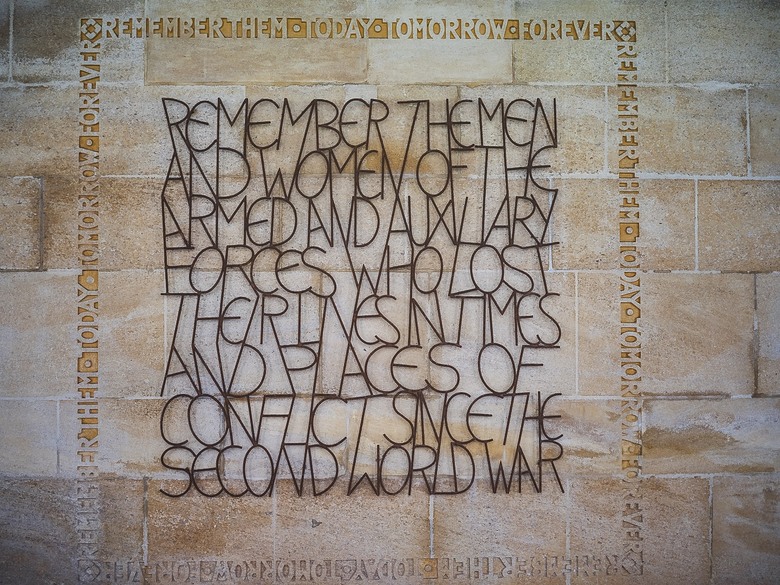 REMEMBER THEM · TODAY · TOMORROW · FOREVER
REMEMBER THEM · TODAY · TOMORROW · FOREVER
REMEMBER THE MEN
AND WOMEN OF THE
ARMED AND AUXILIARY
FORCES WHO LOST
THEIR LIVES IN TIMES
AND PLACES OF
CONFLICT SINCE THE
SECOND WORLD WAR
REMEMBER THEM · TODAY · TOMORROW · FOREVER
REMEMBER THEM · TODAY · TOMORROW · FOREVER